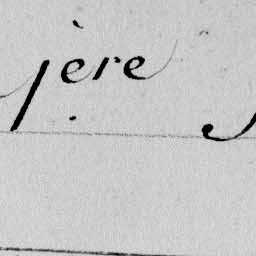 père